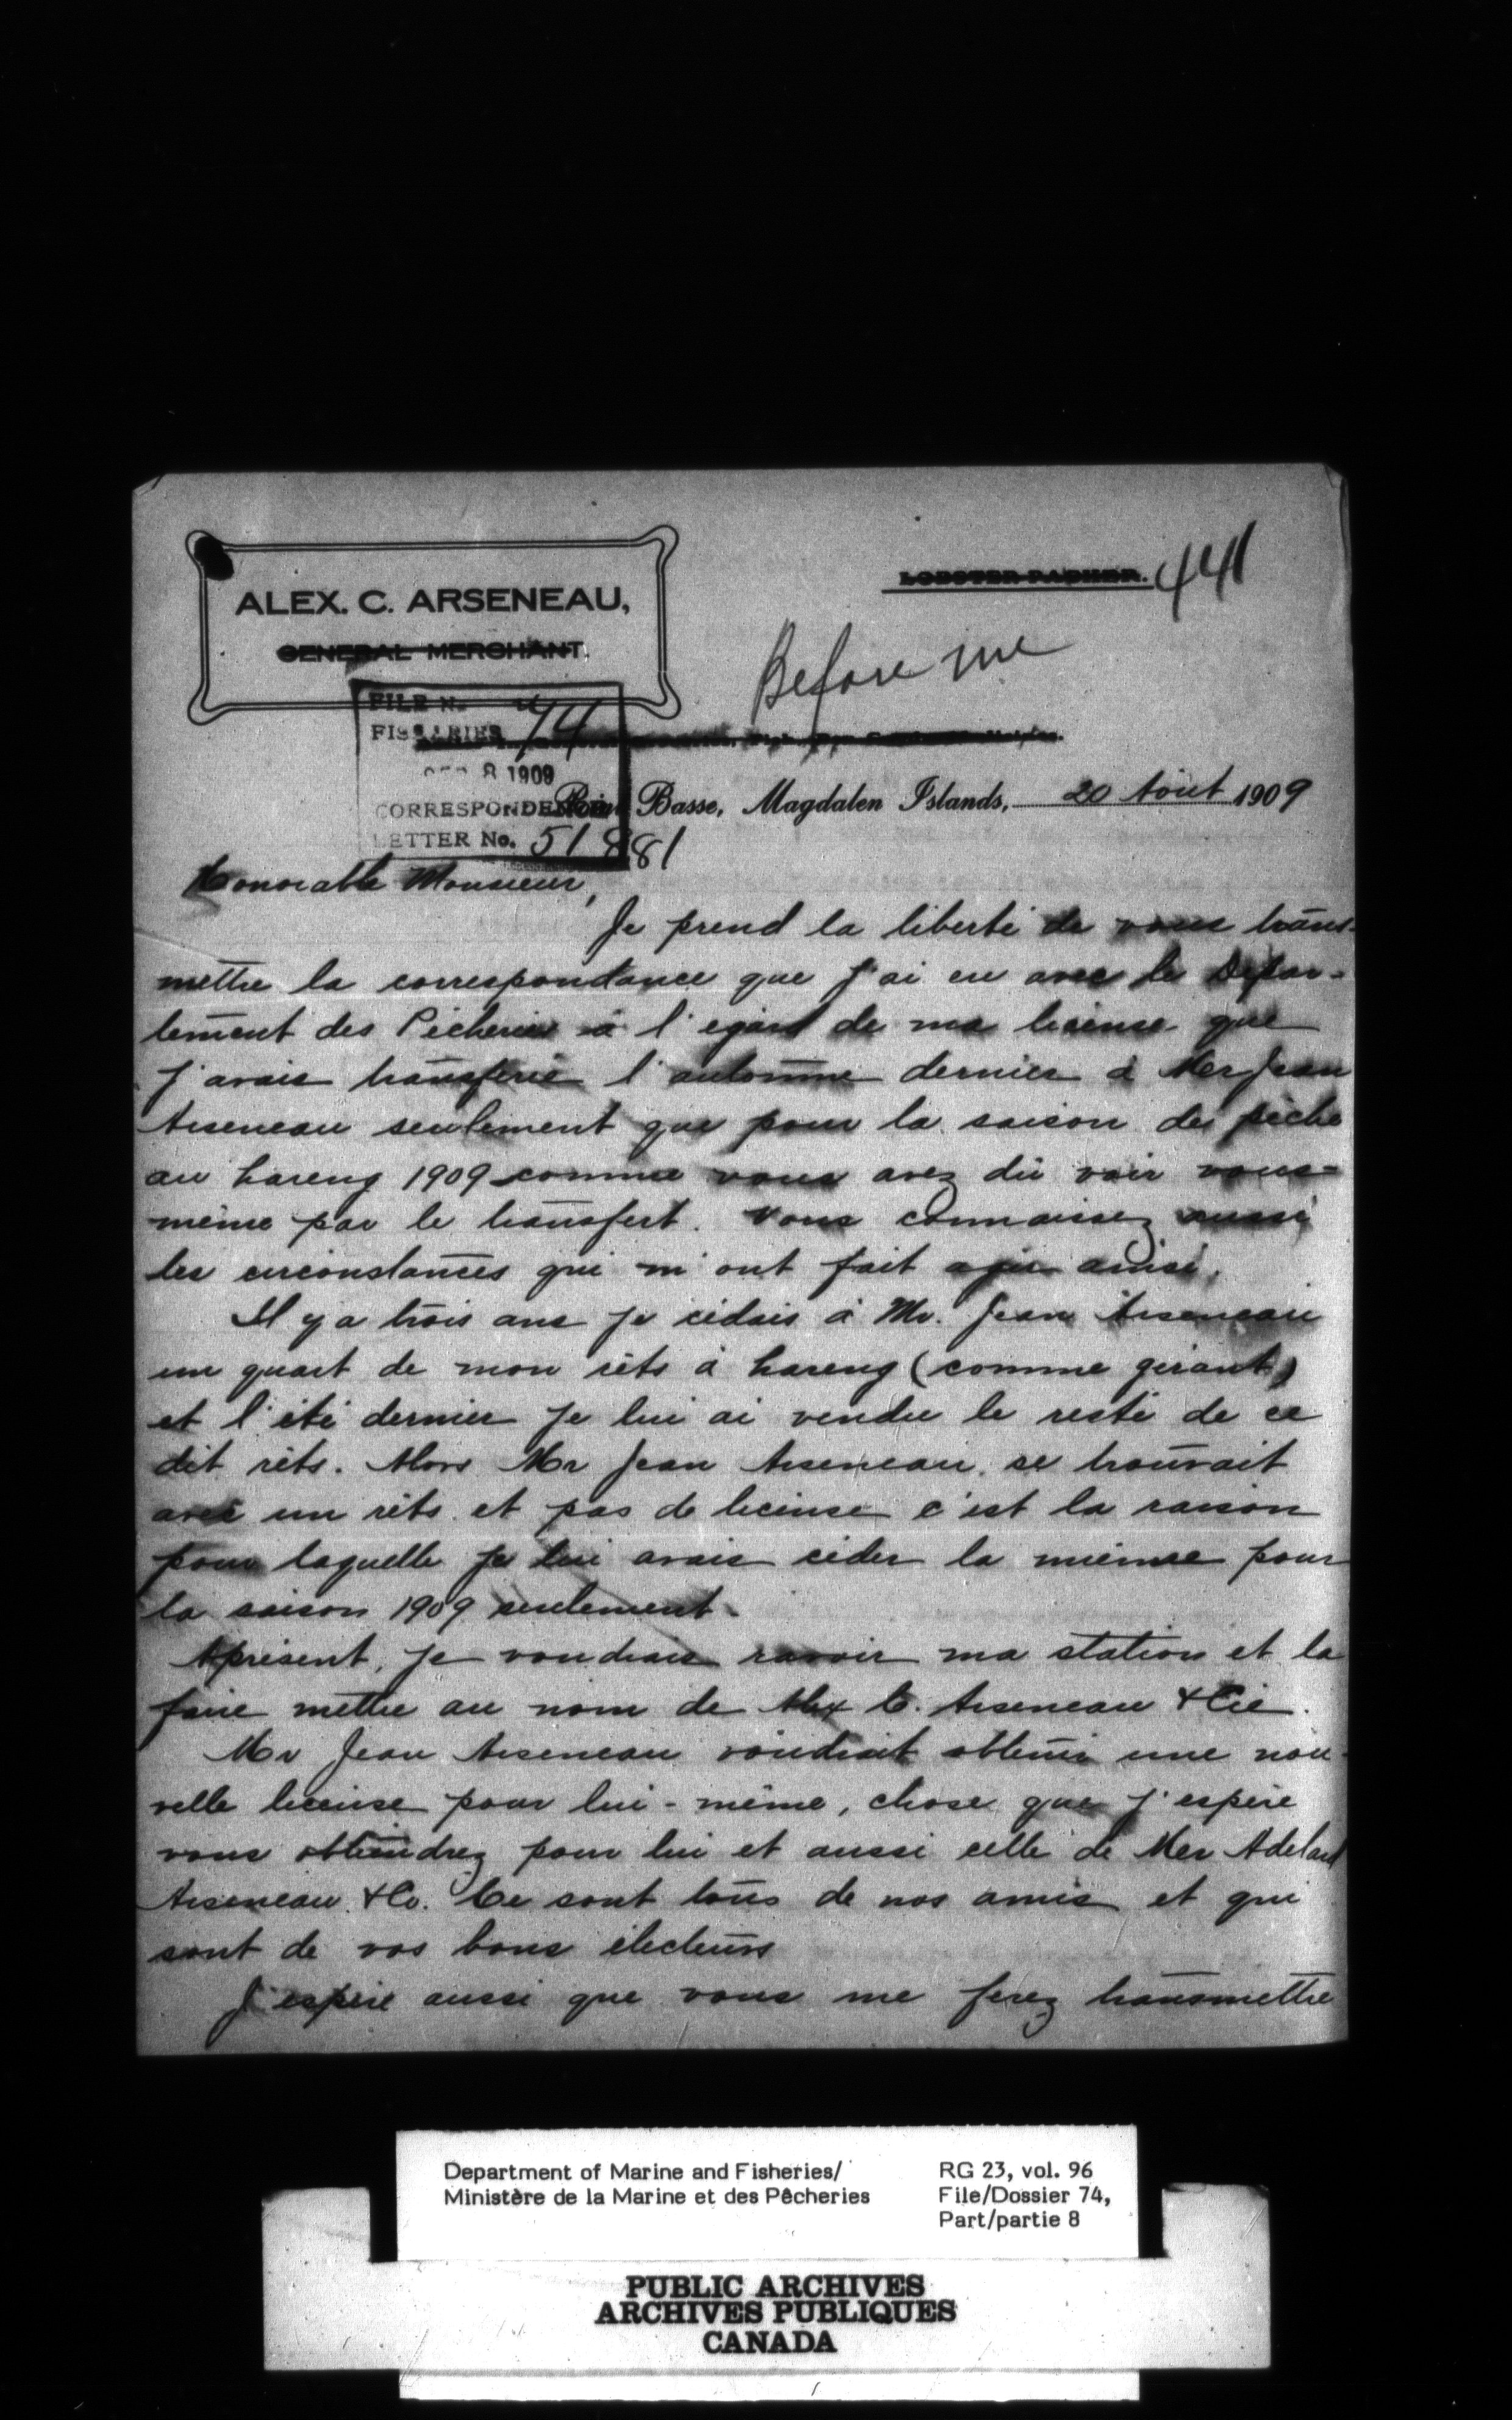 ALEX. C. ARSENEAU,
GENERAL MERCHANT.
LOBSTER PACKER.
441
Before me
FILE No. 74
FISHERIES
8 1909
CORRESPONDENCE
LETTER No. 51881
Basse, Magdalen Islands, 20 Août 1909
Honorable Monsieur,
Je prend la liberté de vous trans-
mettre la correspondance que j'ai eu avec le Depar-
tement des Pêcheries à l'egard de ma license que
j'avais transferée l'automne dernier à Mer Jean
Arseneau seulement que pour la saison de pêche
au hareng 1909 comme vous avez dû voir vous-
même par le transfert. Vous connaissez aussi
les circonstances qui m'ont fait agir ainsi.
Il y a trois ans je cédais à Mr. Jean Arseneau
un quart de mon rêts à hareng (comme gérant)
et l'été dernier je lui ai vendu le reste de ce
dit rêts. Alors Mr Jean Arseneau se trouvait
avec un rêts et pas de license c'est la raison
pour laquelle je lui avais céder la mienne pour
la saison 1909 seulement.
Apresent, je voudrais ravoir ma station et la
faire mettre au nom de Alex C. Arseneau & Cie.
Mr Jean Arseneau voudrait obtenir une nou-
velle license pour lui-même, chose que j'espère
vous obtiendrez pour lui et aussi celle de Mer Adelard
Arseneau & Co. Ce sont tous de nos amis et qui
sont de vos bons électeurs
J'espère aussi que vous me ferez transmettre
Department of Marine and Fisheries/
Ministère de la Marine et des Pêcheries
RG 23, vol. 96
File/Dossier 74,
Part/partie 8
PUBLIC ARCHIVES
ARCHIVES PUBLIQUES
CANADA